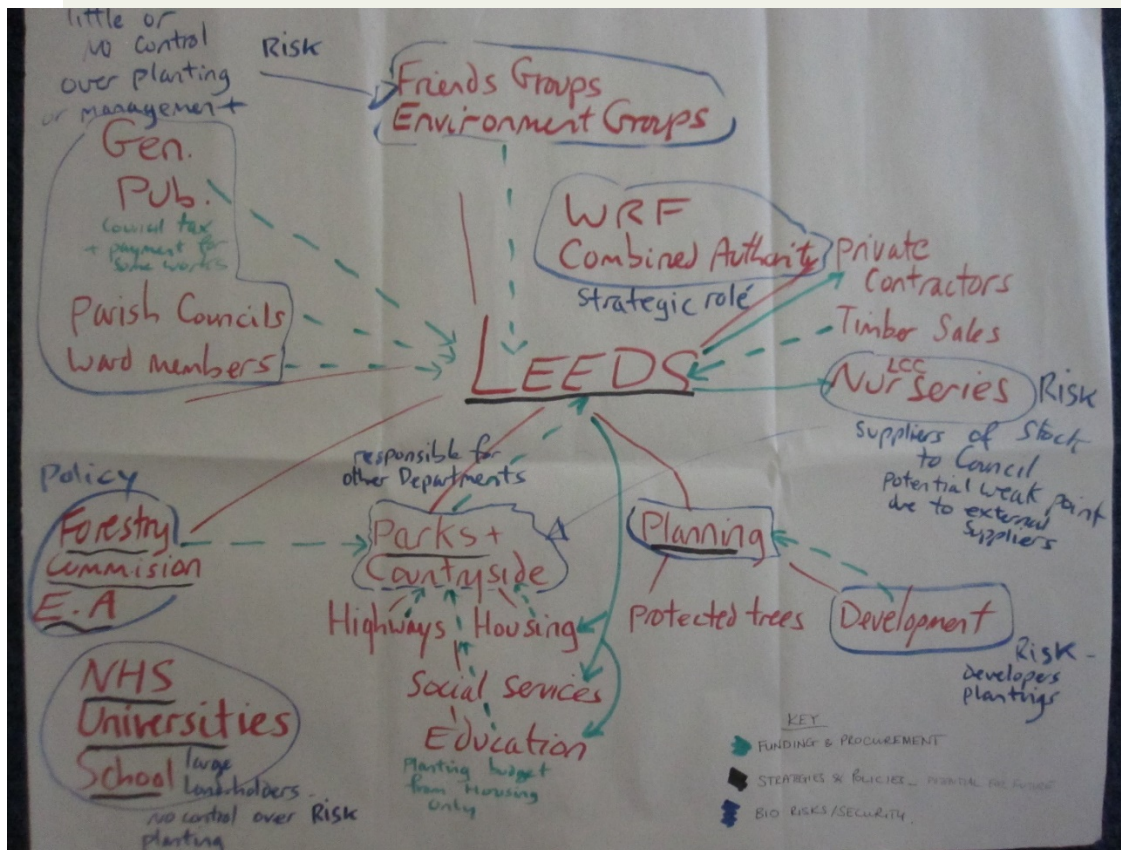 little or
no control
over planting
or management
Risk
Friends Groups
Environment Groups
Gen.
Pub.
council tax
+ payment for
some works
Parish Councils
Ward members
WRF
Combined Authority
Strategic rolé
Private
Contractors
Timber Sales
LEEDS
LCC
Nurseries
Risk
Suppliers of Stock
to Council
Potential weak point
due to external
Suppliers
responsible for
other Departments
Policy
Forestry
Commision
E.A
Parks +
Countryside
Planning
Highways
Housing
Protected trees
Development
Risk -
Developers
plantings
Social Services
Education
Planting budget
from Housing
only
NHS
Universities
School
large
Landholders -
No control over Risk
planting
KEY
FUNDING & PROCUREMENT
STRATEGIES & POLICIES -
BIO RISKS/SECURITY.